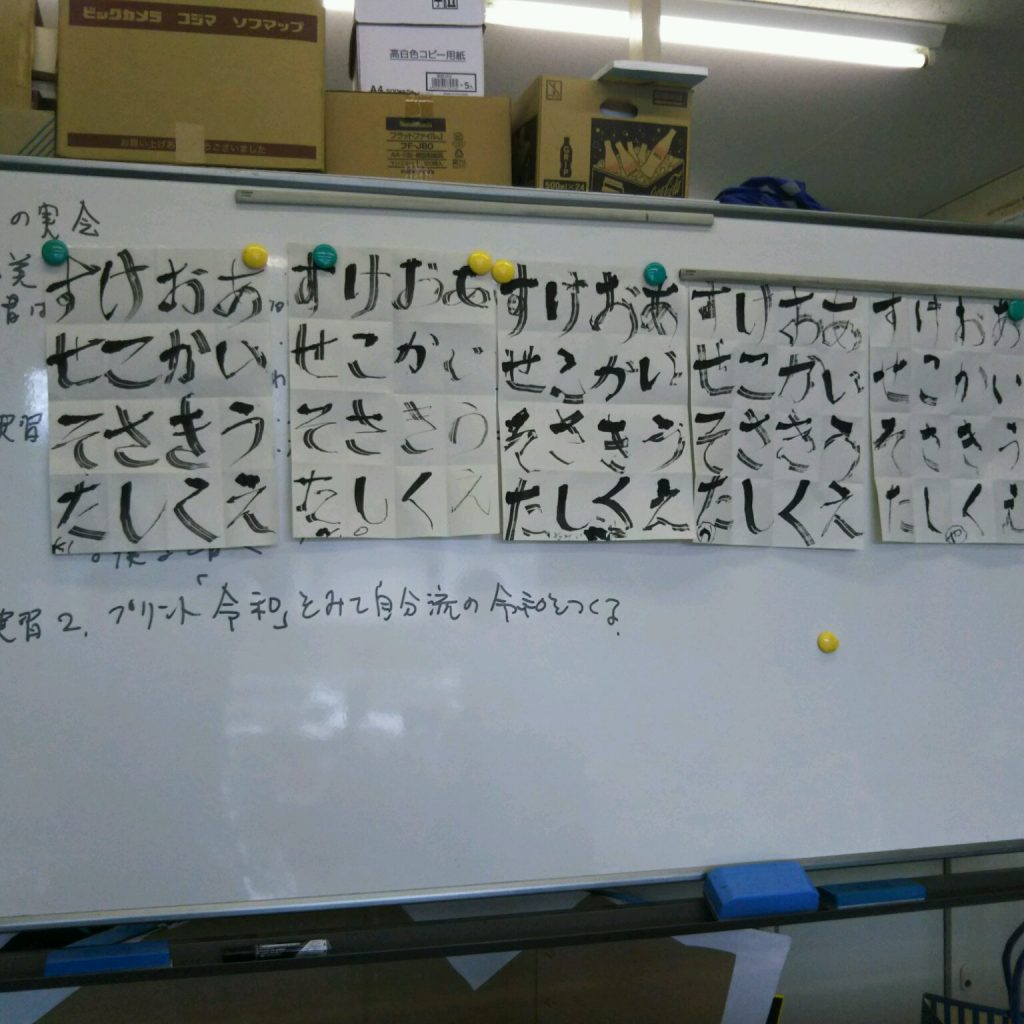 ビックカメラ コジマ ソフマップ
高白色コピー用紙
A4
5
フラットファイルJ
FF-J80
500ml×24
Coca-Cola
の実
美
習は
すけおあ
せこかい
そさきう
たしくえ
すけおあ
せこかい
そさきう
たしくえ
すけおあ
せこかい
そさきう
たしくえ
すけおあ
せこかい
そさきう
たしくえ
すけおあ
せこかい
そさきう
たしくえ
実習
実習2. プリント「令和」をみて自分流の令和をつくる